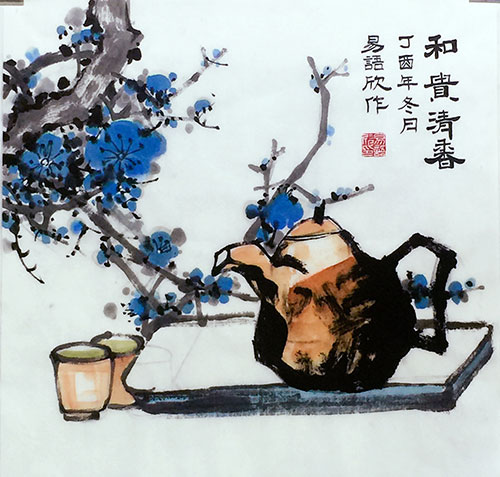 和貴清香
丁酉年冬月
易語欣作